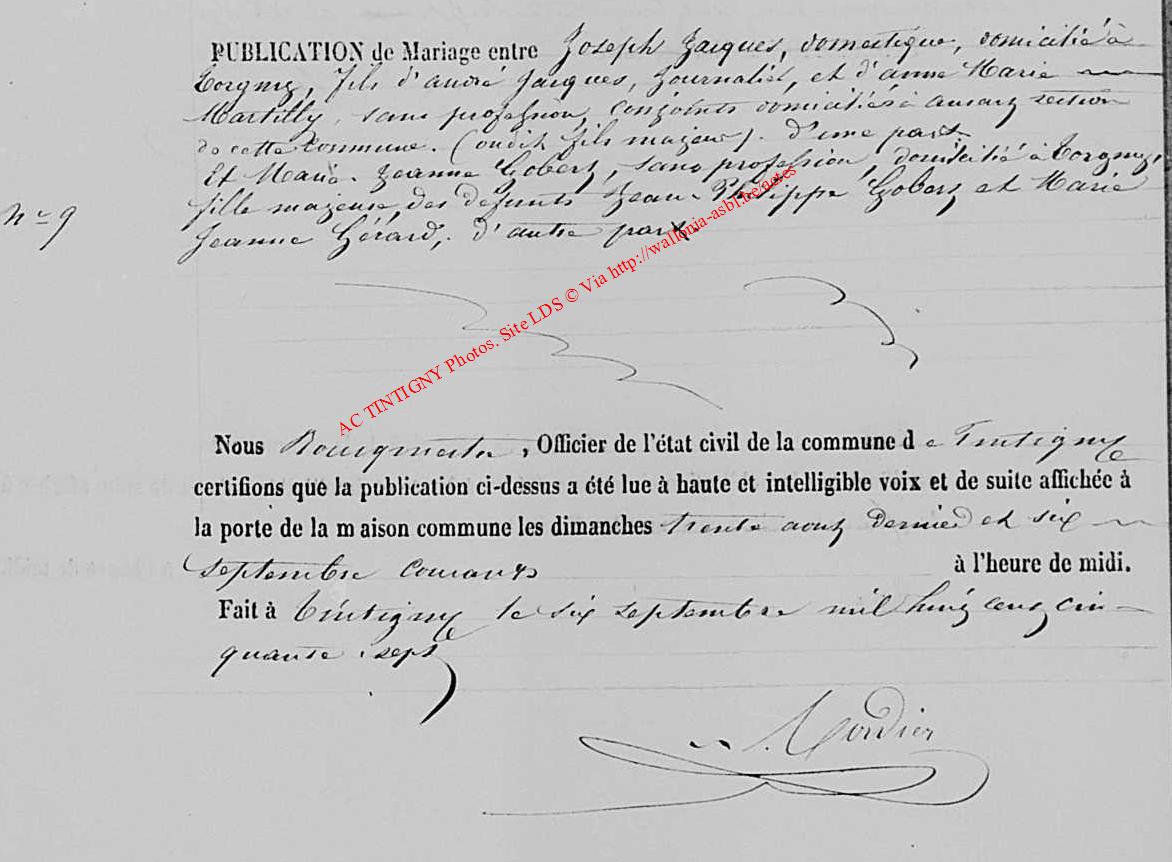 PUBLICATION de Mariage entre Joseph Jacques, domestique, domicilié à
Torgny, fils d'andré Jacques, Journalier, et d'anne Marie
Martilly, sans profession, conjoints domiciliés à ansart section
de cette Commune. (ondit fils majeur). d'une part.
Et Marie Jeanne Gobert, sans profession, domicilié à Torgny,
fille majeure des défunts Jean Philippe Gobert et Marie
n° 9
Jeanne Gérard, d'autre part.
AC TINTIGNY Photos. Site LDS © Via http://wallonia-asbl.be/notes
Nous Bourgmestre, Officier de l'état civil de la commune de Tintigny
certifions que la publication ci-dessus a été lue à haute et intelligible voix et de suite affichée à
la porte de la maison commune les dimanches trente aout dernier et six
septembre courant à l'heure de midi.
Fait à Tintigny le six septembre mil huit cent cin
quante sept